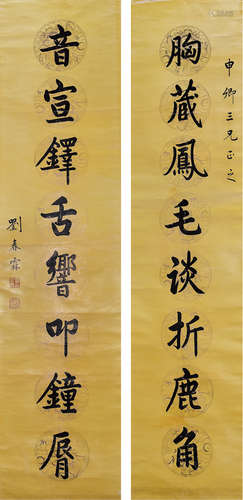 申卿三兄正之
胸藏鳳毛談折鹿角
音宣鐸舌響叩鐘脣
劉春霖